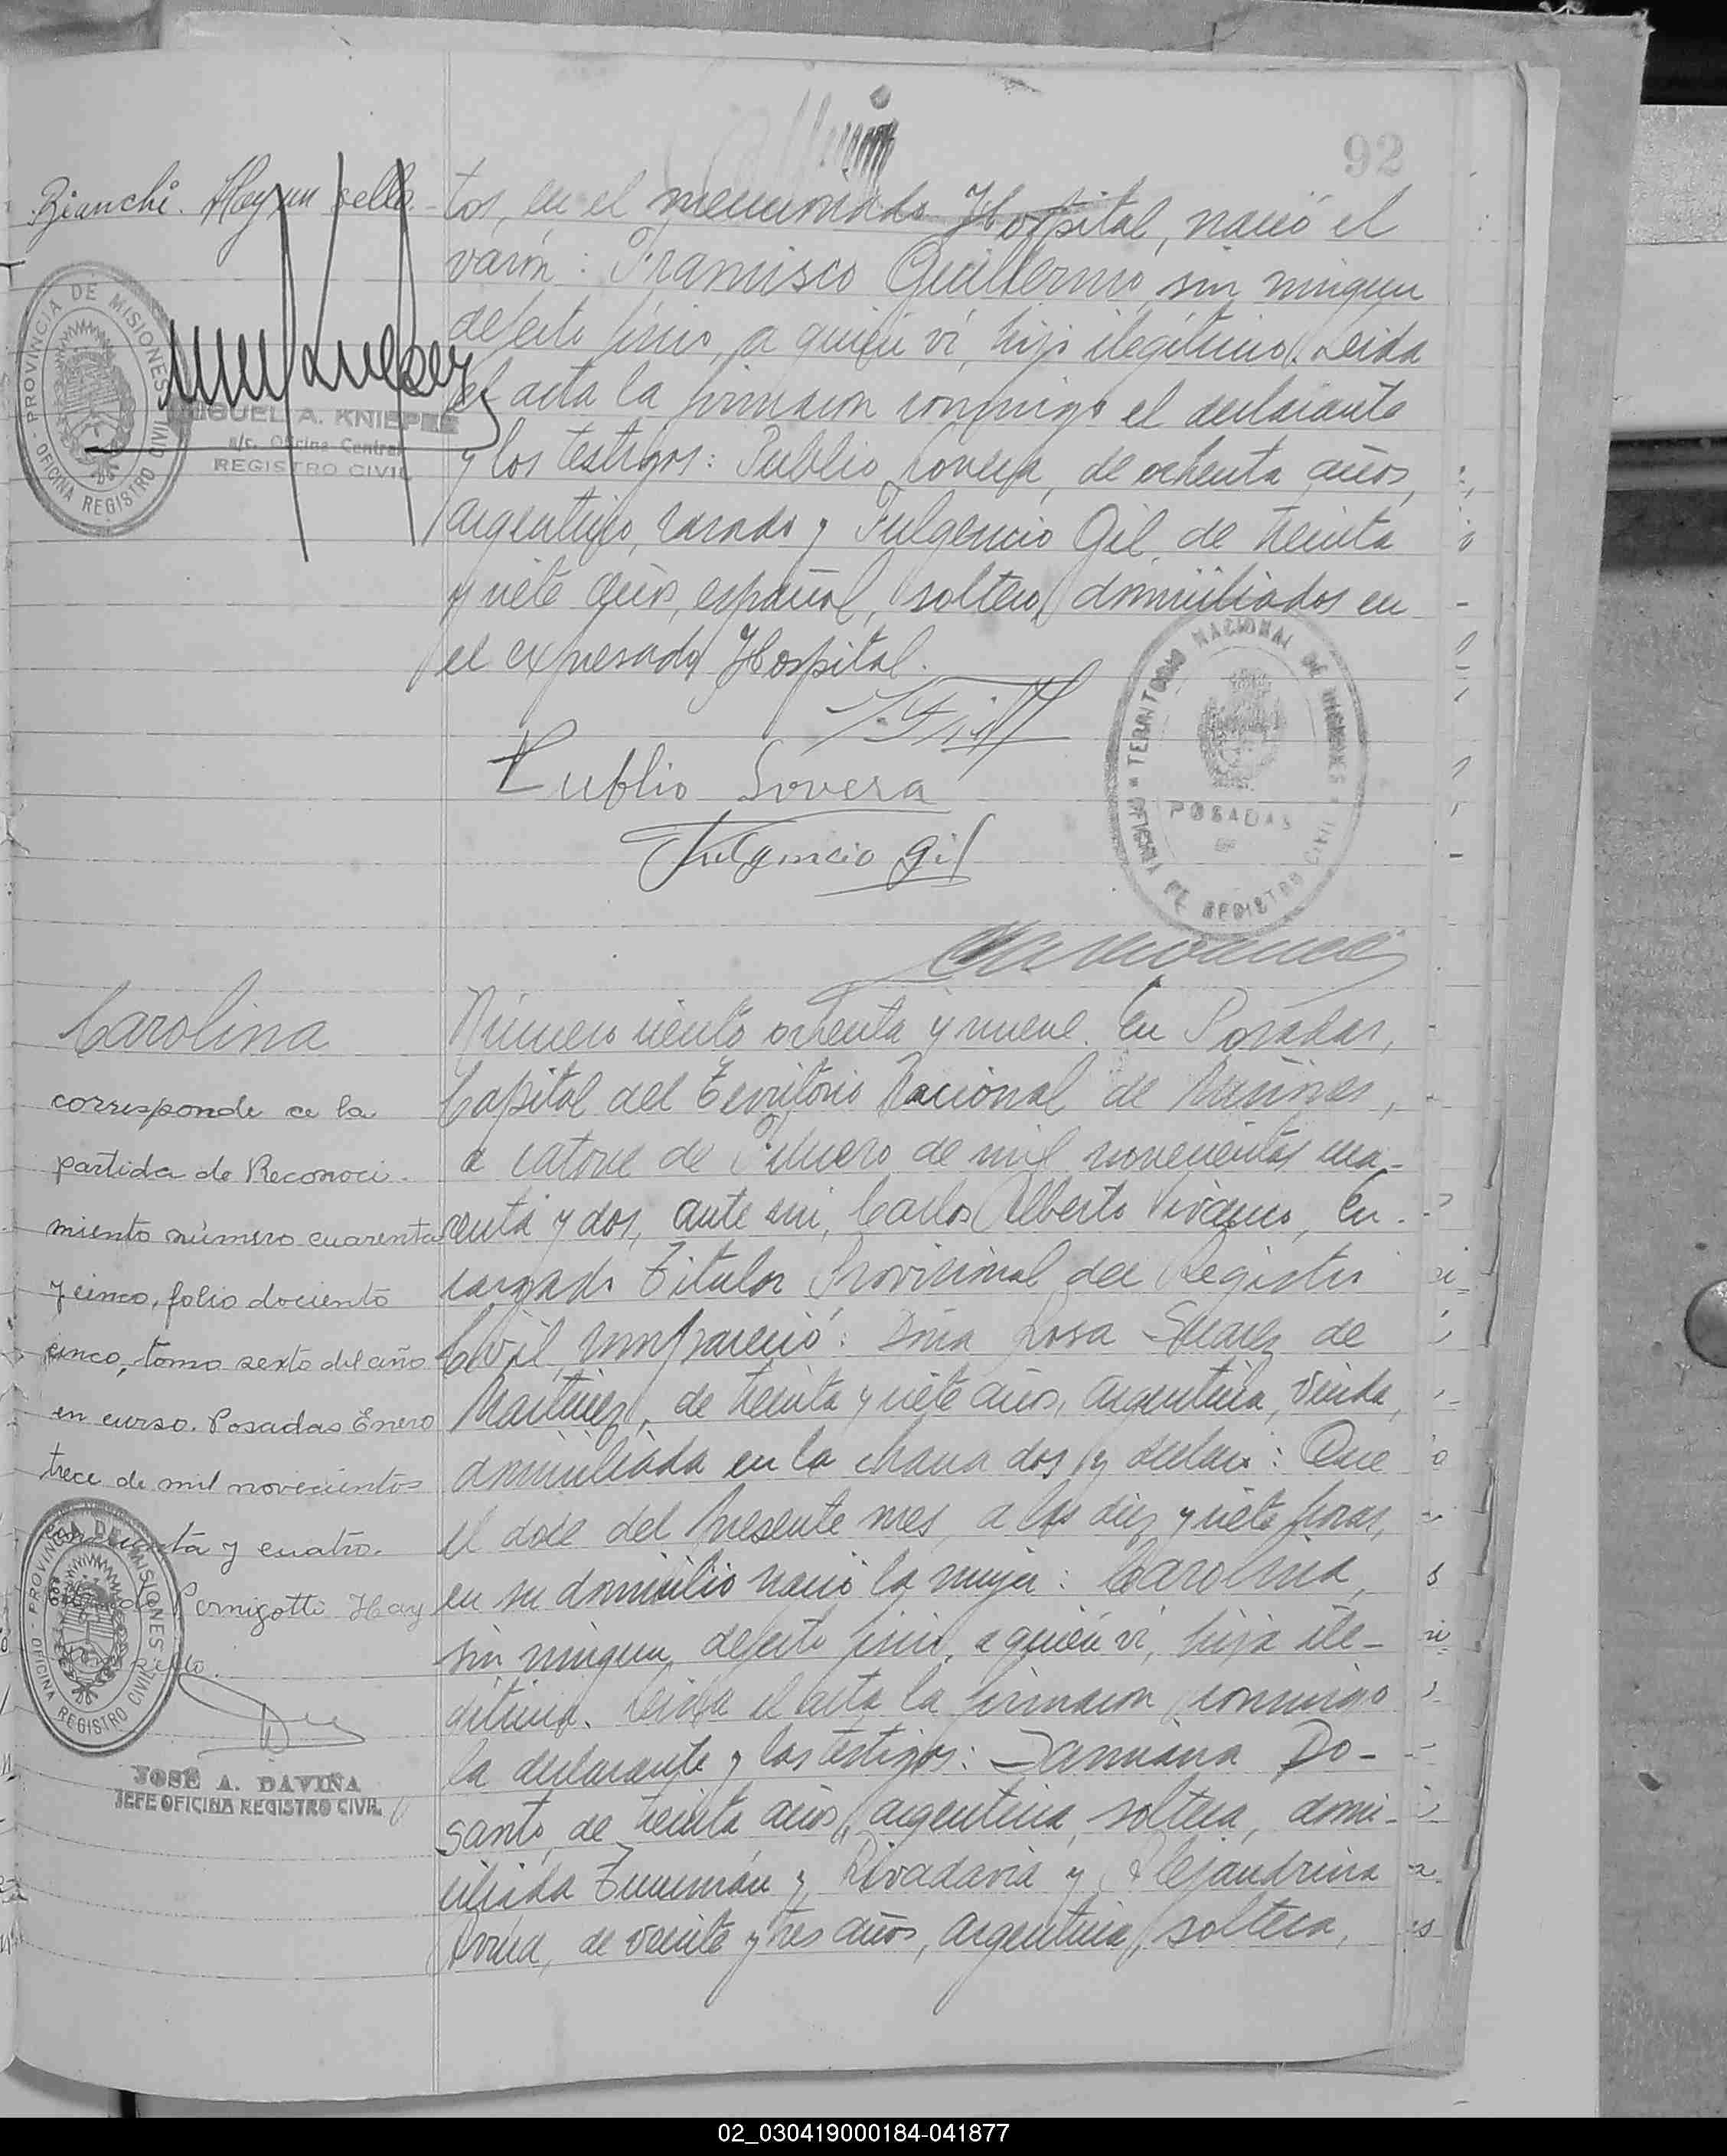 92
Bianchi. Hay un sello.
tos, en el mencionado Hospital, nació el
varón: Francisco Guillermo, sin ningun
defecto físico, a quien ví, hijo ilegítimo. Leida
el acta la firmaron conmigo el declarante
y los testigos: Publio Lovera, de ochenta años,
argentino, casado y Fulgencio Gil, de treinta
y siete años, español, soltero, domiciliados en
el expresado Hospital.
PROVINCIA DE MISIONES
OFICINA REGISTRO CIVIL
MIGUEL A. KNIEPER
a/c. Oficina Central
REGISTRO CIVIL
Publio Lovera
Fulgencio Gil
TERRITORIO NACIONAL DE MISIONES
POSADAS
OFICINA DE REGISTRO CIVIL
Carolina
corresponde a la
partida de Reconoci-
miento número cuarenta
y cinco, folio dociento
cinco, tomo sexto del año
en curso. Posadas Enero
trece de mil novecientos
cincuenta y cuatro.
Pernigotti Hay
sello.
PROVINCIA DE MISIONES
OFICINA REGISTRO CIVIL
JOSE A. DAVIÑA
JEFE OFICINA REGISTRO CIVIL
Número ciento ochenta y nueve. En Posadas,
Capital del Territorio Nacional de Misiones,
a catorce de Febrero de mil novecientos cua-
renta y dos, ante mi, Carlos Alberto Vivanco, En-
cargado Titular Provisional del Registro
Civil, compareció: Doña Rosa Suarez de
Martinez, de treinta y siete años, argentina, viuda,
domiciliada en la chacra dos y declaró: Que
el doce del presente mes, a las diez y siete horas,
en su domicilio nació la mujer: Carolina,
sin ningun defecto físico, a quién ví, hija ile-
gitima. Leida el acta la firmaron conmigo
la declarante y las testigos: Damiana Do-
santo, de treinta años, argentina, soltera, domi-
ciliada Tucumán y Rivadavia y Alejandrina
de veinte y tres años, argentina, soltera,
02_030419000184-041877